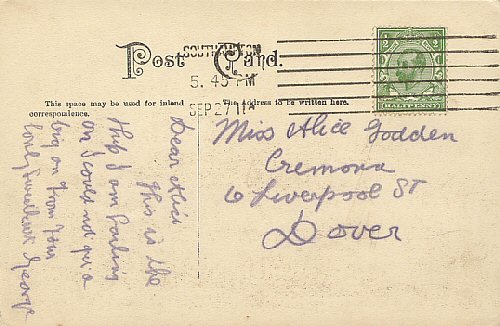 Post Card.
SOUTHAMPTON
5.45 PM
SEP 27 11
HALFPENNY
This space may be used for inland
correspondence.
The Address to be written here.
Dear Alice
This is the
ship I am Sailing
on I could not get a
big on from your
George
Miss Alice Godden
Cremona
6 Liverpool ST
Dover